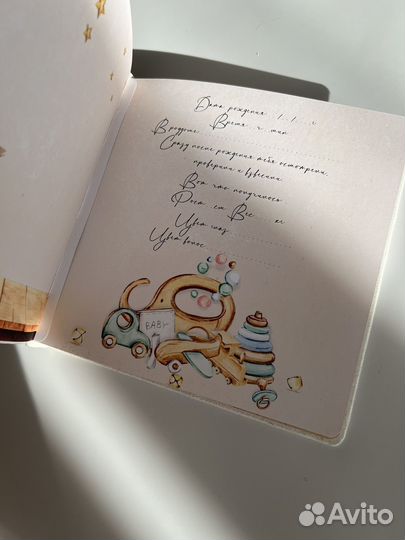 Дата рождения: ../../....г
Время ..ч ..мин
В роддоме
Сразу после рождения тебя осмотрели,
проверили и взвесили.
Вот что получилось:
Рост ... см Вес ... кг
Цвет глаз
Цвет волос
BABY
Avito